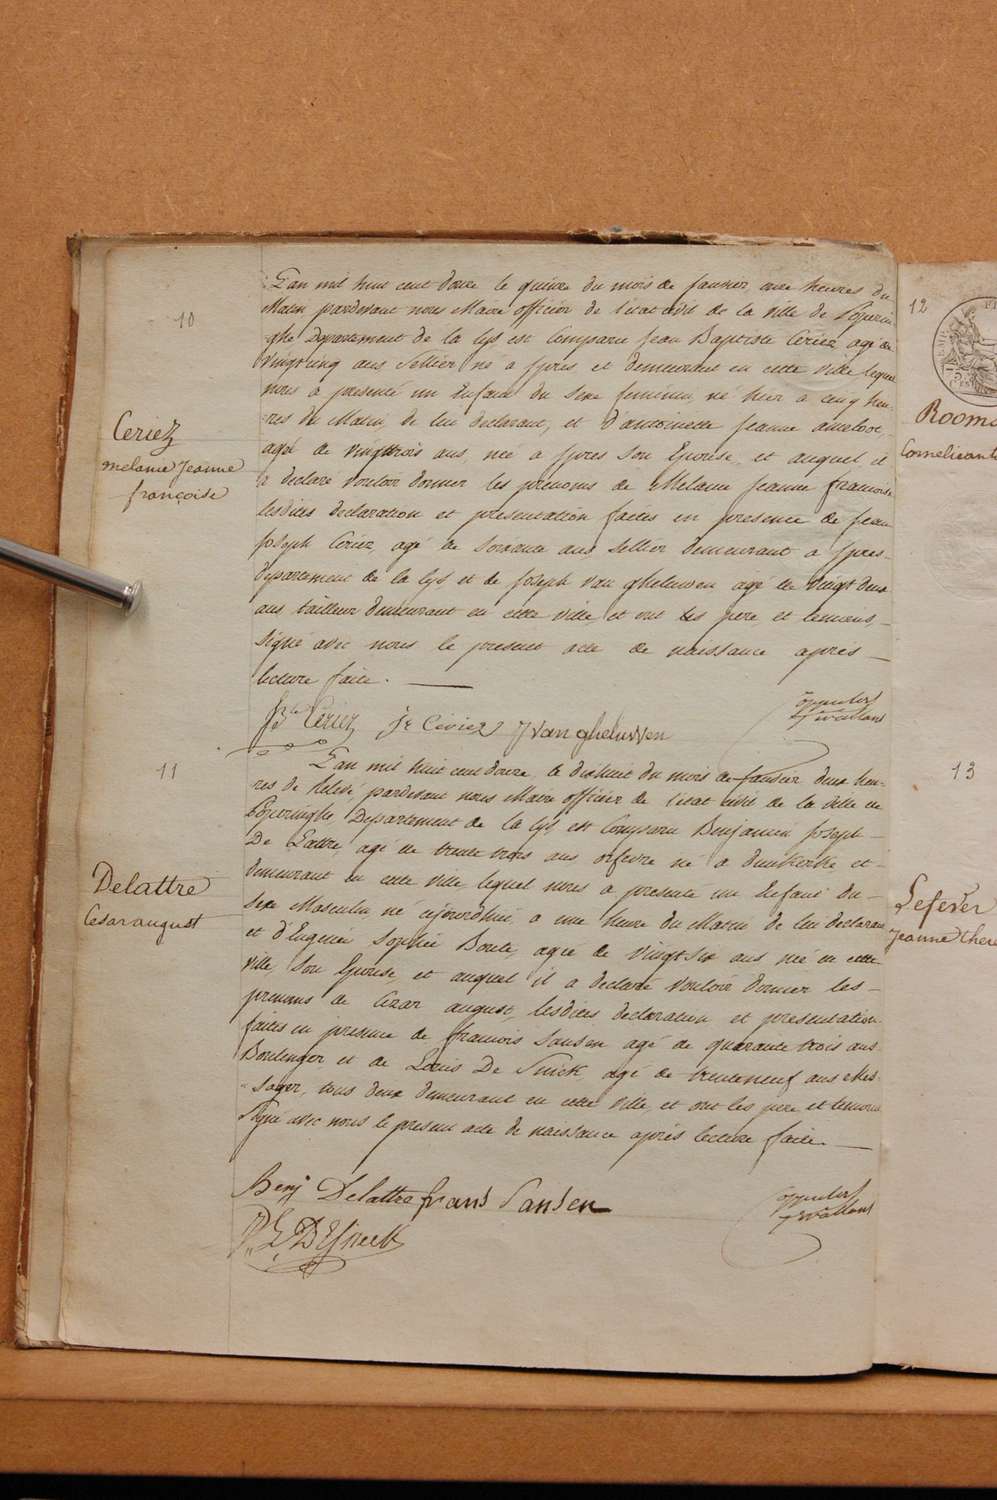 10
Ceriez
melanie Jeanne
françoise
L'an mil huit cent douze le quinze du mois de Janvier, onze heures du
Matin pardevant nous Maire officier de l'état civil de la ville de Poperin-
ghe Departement de la Lys est Comparu Jean Baptiste Ceriez agé de
vingtcinq ans Sellier né a Ypres et demeurant en cette ville lequel
nous a presenté un Enfant du Sexe feminin, né hier a cinq heu-
res du Matin, de lui declarant, et d'antoinette Jeanne
agée de vingttrois ans, née a Ypres Son Epouse, et auquel il
a declaré vouloir donner les prenoms de Melanie Jeanne francoise
lesdites declaration et presentation faites en presence de Jean
Joseph Ceriez, agé de soixante ans Sellier demeurant a Ypres-
departement de la Lys et de Joseph Van gheluwen agé de vingt deux
ans tailleur demeurant en cette ville et ont les pere et temoins,
signé avec nous le present acte de naissance après
lecture faite.
Ceriez Jr Ceriez J van gheluwen
11
Delattre
Cesar august
L'an mil huit cent douze, le dixhuit du mois de Janvier deux heu-
res de Relevé, pardevant nous Maire officier de l'etat civil de la ville de
Poperinghe Departement de la Lys est Comparu Benjamin Joseph
De Lattre, agé de trente trois ans orfevre né a dunkerke et
demeurant en cette ville, lequel nous a presenté un Enfant du
Sexe Masculin né cejourd'hui a une heure du Matin de lui declarant
et d'Eugenie Sophie Bonte, agée de vingt Six ans née en cette
ville, Son Epouse, et auquel il a declaré vouloir donner les
prenoms de Cezar august, lesdites declaration et presentation
faites en presence de francois Jansen agé de quarante trois ans
Boulenger et de Louis De Snick agé de trenteneuf ans Mes-
sager, tous deux demeurant en cette ville, et ont les pere et temoins
Signé avec nous le present acte de naissance après lecture faite
Benj Delattre frans Jansen
12
Rooms
13
Lefever
Jeanne there